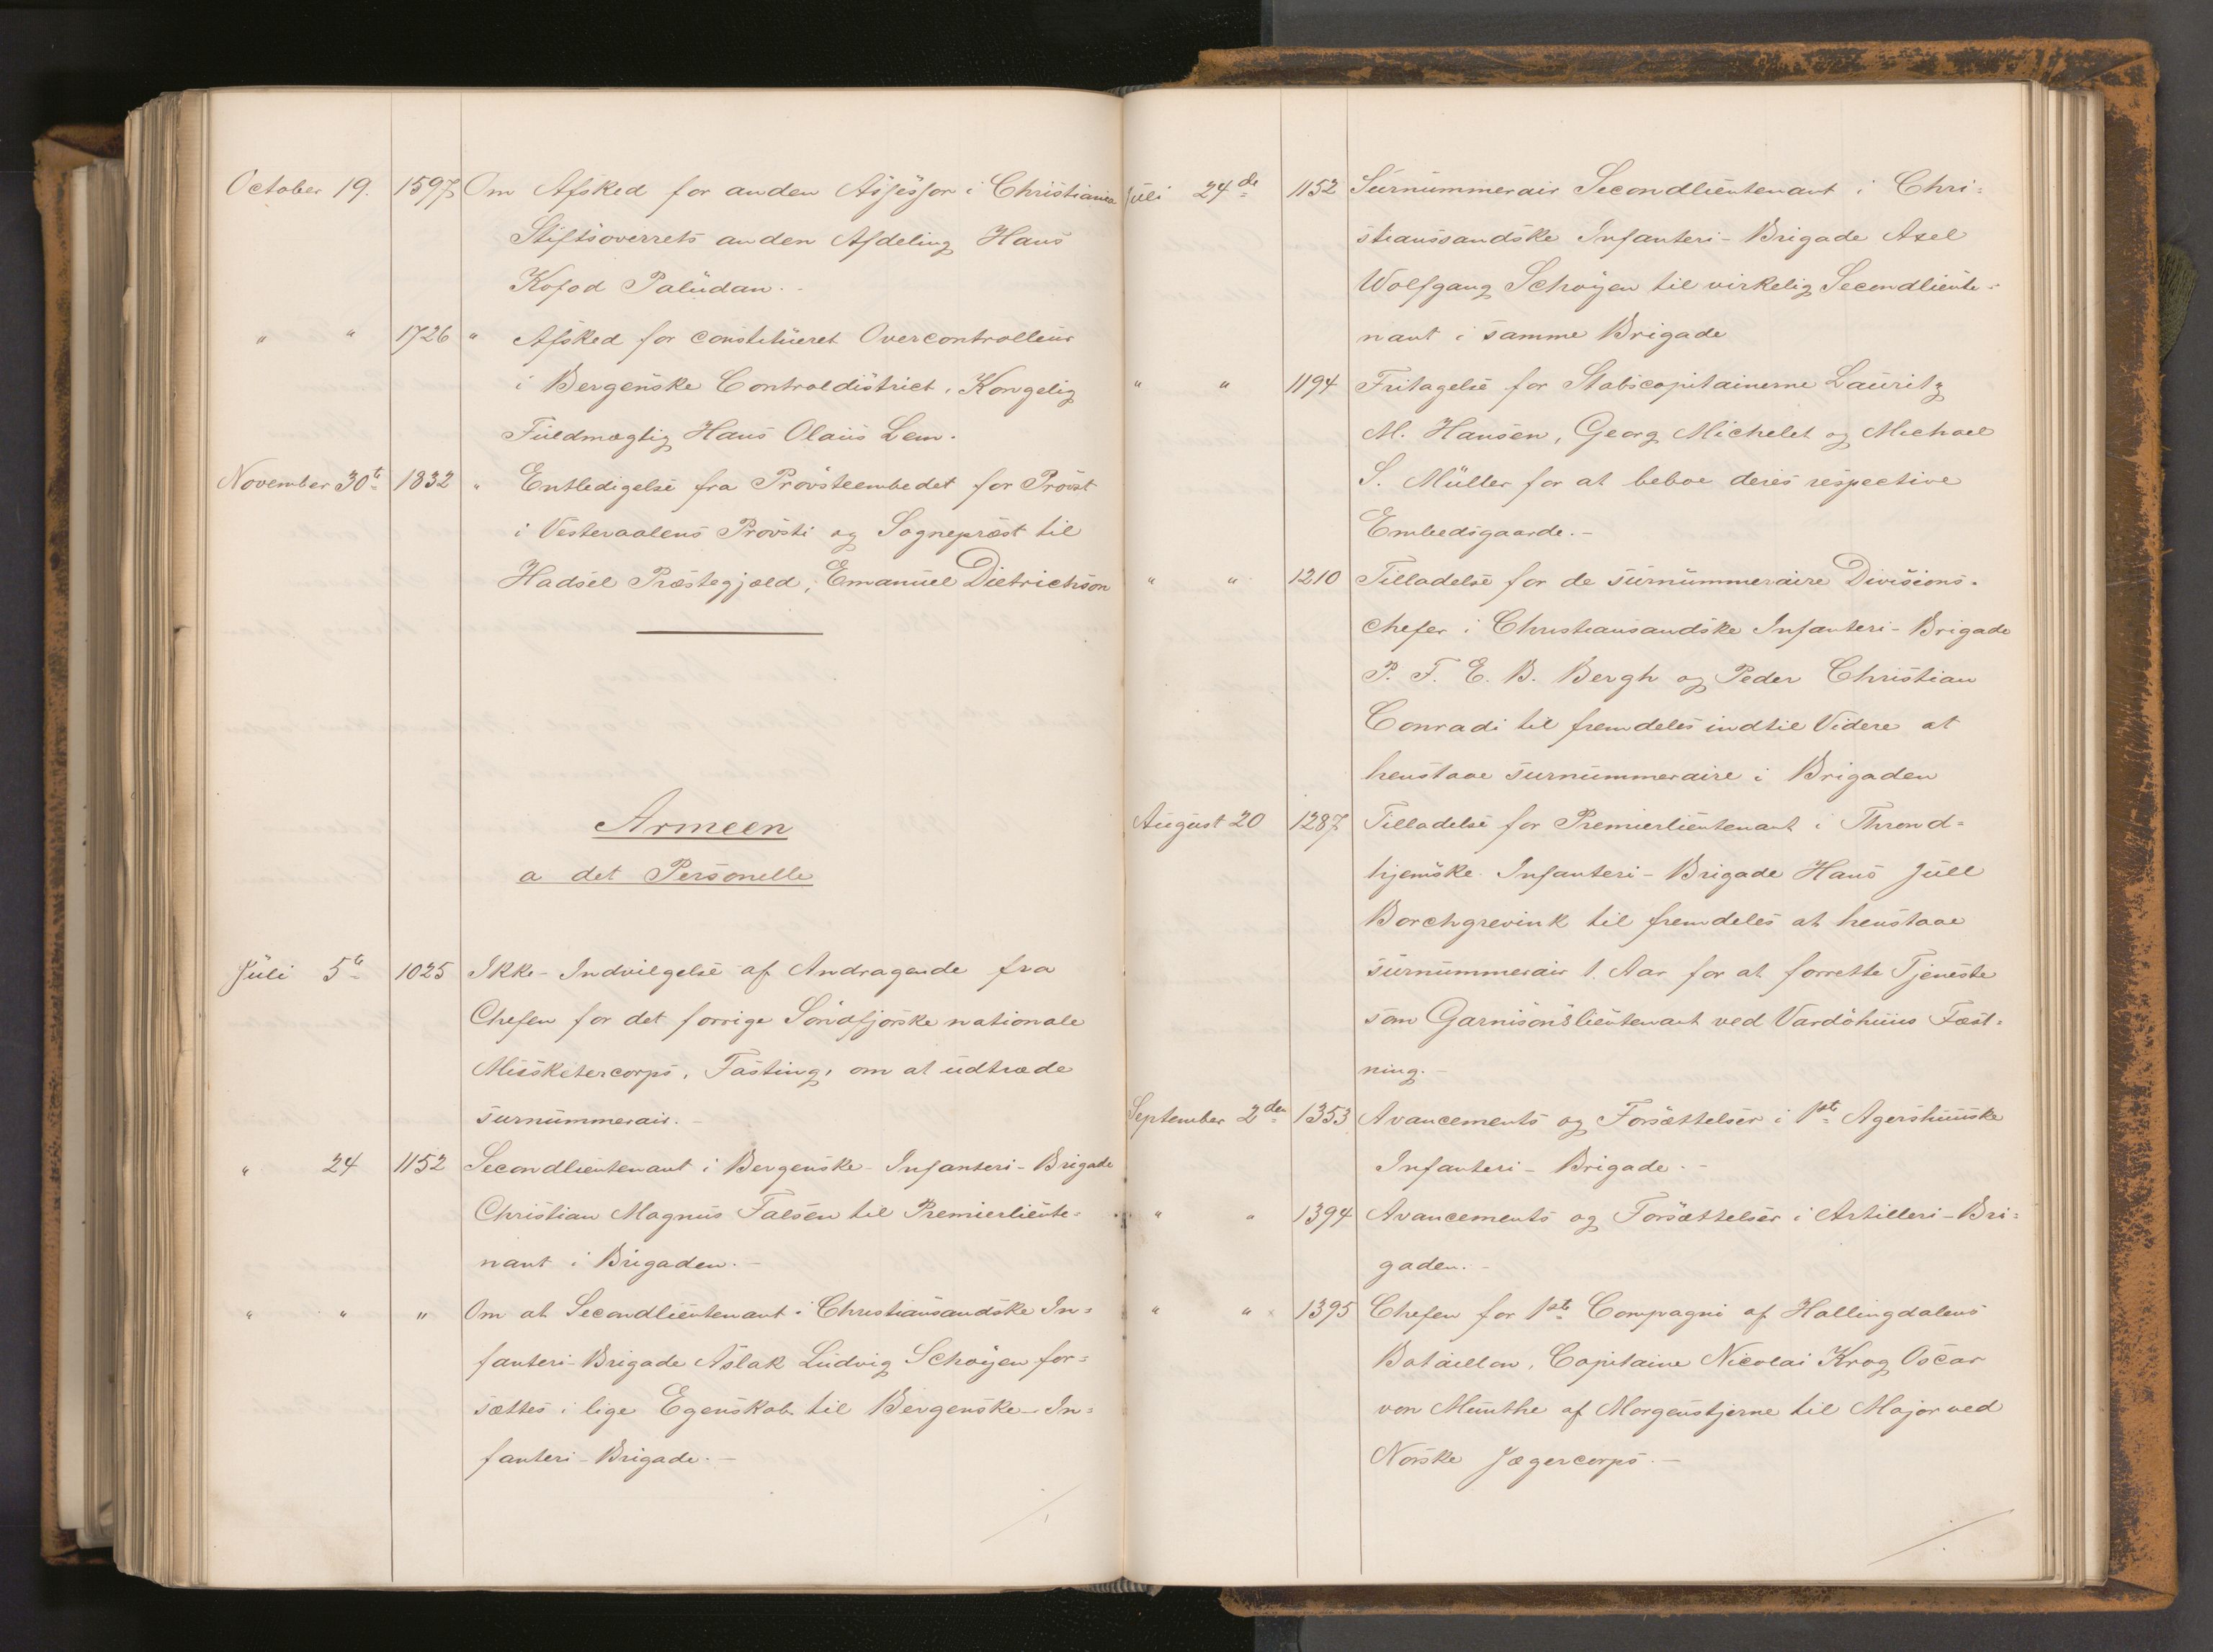 October 19. 1597 Om Afsked for anden Assessor i Christiania
Stiftsoverrets anden Afdeling Hans
Kofod Paludan.
" " 1726 " Afsked for constitueret Overcontrolleur
i Bergenske Controldistrict, Kongelig
Fuldmægtig Hans Olaus Lem.
November 30te 1832 " Entledigelse fra Provsteembedet for Provst
i Vesteraalens Provsti og Sognepræst til
Hadsel Præstegjæld, Emanuel Dietrichson
Armeen
a det Personelle
Juli 5te 1025 Ikke-Indvilgelse af Andragende fra
Chefen for det forrige Söndfjorske nationale
Musketercorps, Fasting, om at udtræde
surnummerair.-
" 24 1152 Secondlieutenant i Bergenske-Infanteri-Brigade
Christian Magnus Falsen til Premierlieute=
nant i Brigaden.-
" " " Om at Secondlieutenant i Christiansandske In=
fanteri-Brigade Aslak Ludvig Schöyen for=
sættes i lige Egenskab til Bergenske-In=
fanteri-Brigade.-
Juli 24de 1152 Surnummerair Secondlieutenant i Chri=
stianssandske Infanteri-Brigade Axel
Wolfgang Schöyen til virkelig Secondlieute=
nant i samme Brigade
" " 1194 Fritagelse for Stabscapitainerne Lauritz
M. Hansen, Georg Michelet og Michael
S. Müller for at beboe deres respective
Embedsgaarde.-
" " 1210 Tilladelse for de surnummeraire Divisions=
chefer i Christiansandske Infanteri-Brigade
P. F. E. B. Bergh og Peder Christian
Conradi til fremdeles indtil Videre at
henstaae surnummeraire i Brigaden
August 20 1287 Tilladelse for Premierlieutenant i Thrond=
hjemske Infanteri-Brigade Hans Juell
Borchgrevink til fremdeles at henstaae
surnummerair 1. Aar for at forrette Tjeneste
som Garnisonslieutenant ved Vardöhuus Fæst=
ning.-
September 2den 1353 Avancements og Forsættelser i 1ste Agershuuske
Infanteri-Brigade.-
" " 1394 Avancements og Forsættelser i Artilleri-Bri=
gaden.-
" " 1395 Chefen for 1ste Compagni af Hallingdalens
Bataillon, Capitaine Nicolai Krog Oscar
von Munthe af Morgenstjerne til Major ved
Norske Jægercorps.-